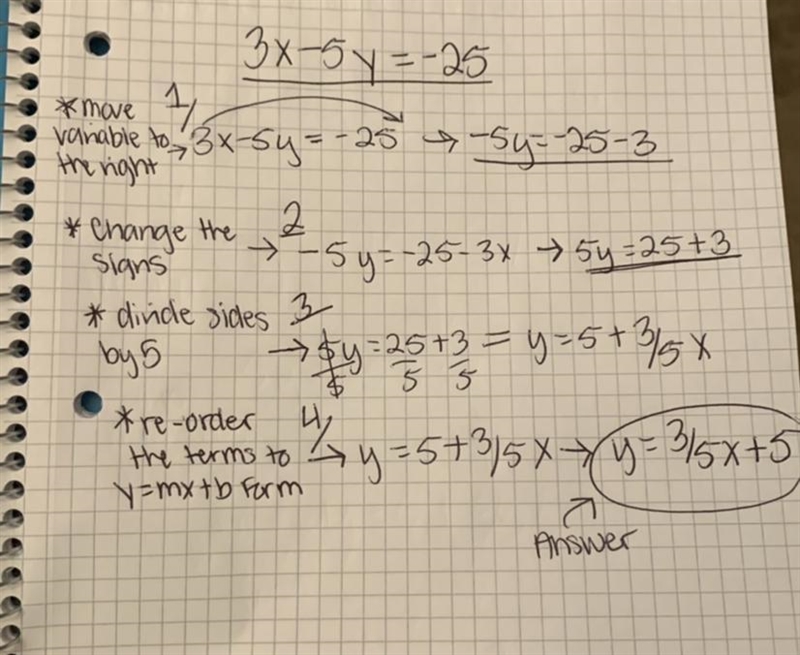 3x-5y=-25
*move 1/
variable to → 3x-5y=-25 → -5y=-25-3
the right
* Change the 2
signs → -5y=-25-3x → 5y=25+3
* divide sides 3
by 5 → 5y/5=25/5+3/5 = y=5+3/5x
*re-order 4/
the terms to → y=5+3/5x → y=3/5x+5
y=mx+b Form
Answer